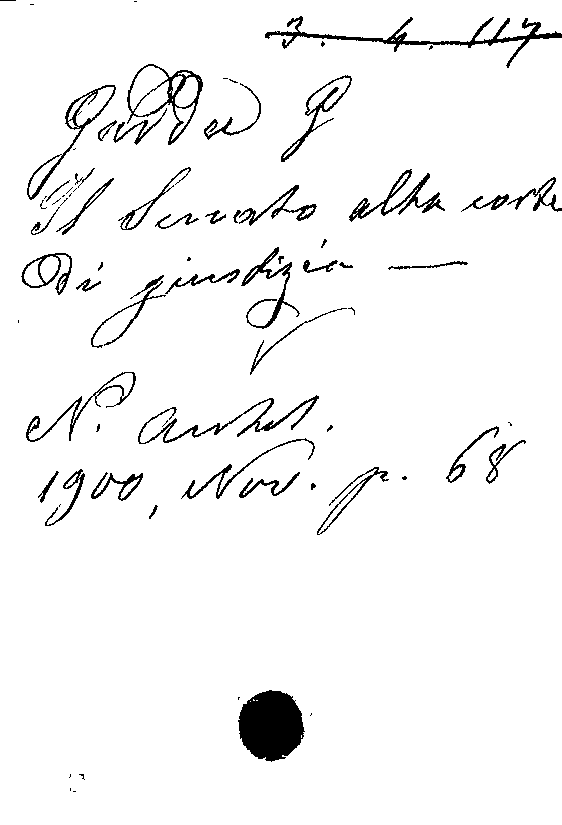 3. 4. 117
Gaddu G
Il Senato alta corte
di giustizia —
N. Antol.
1900, Nov. p. 68